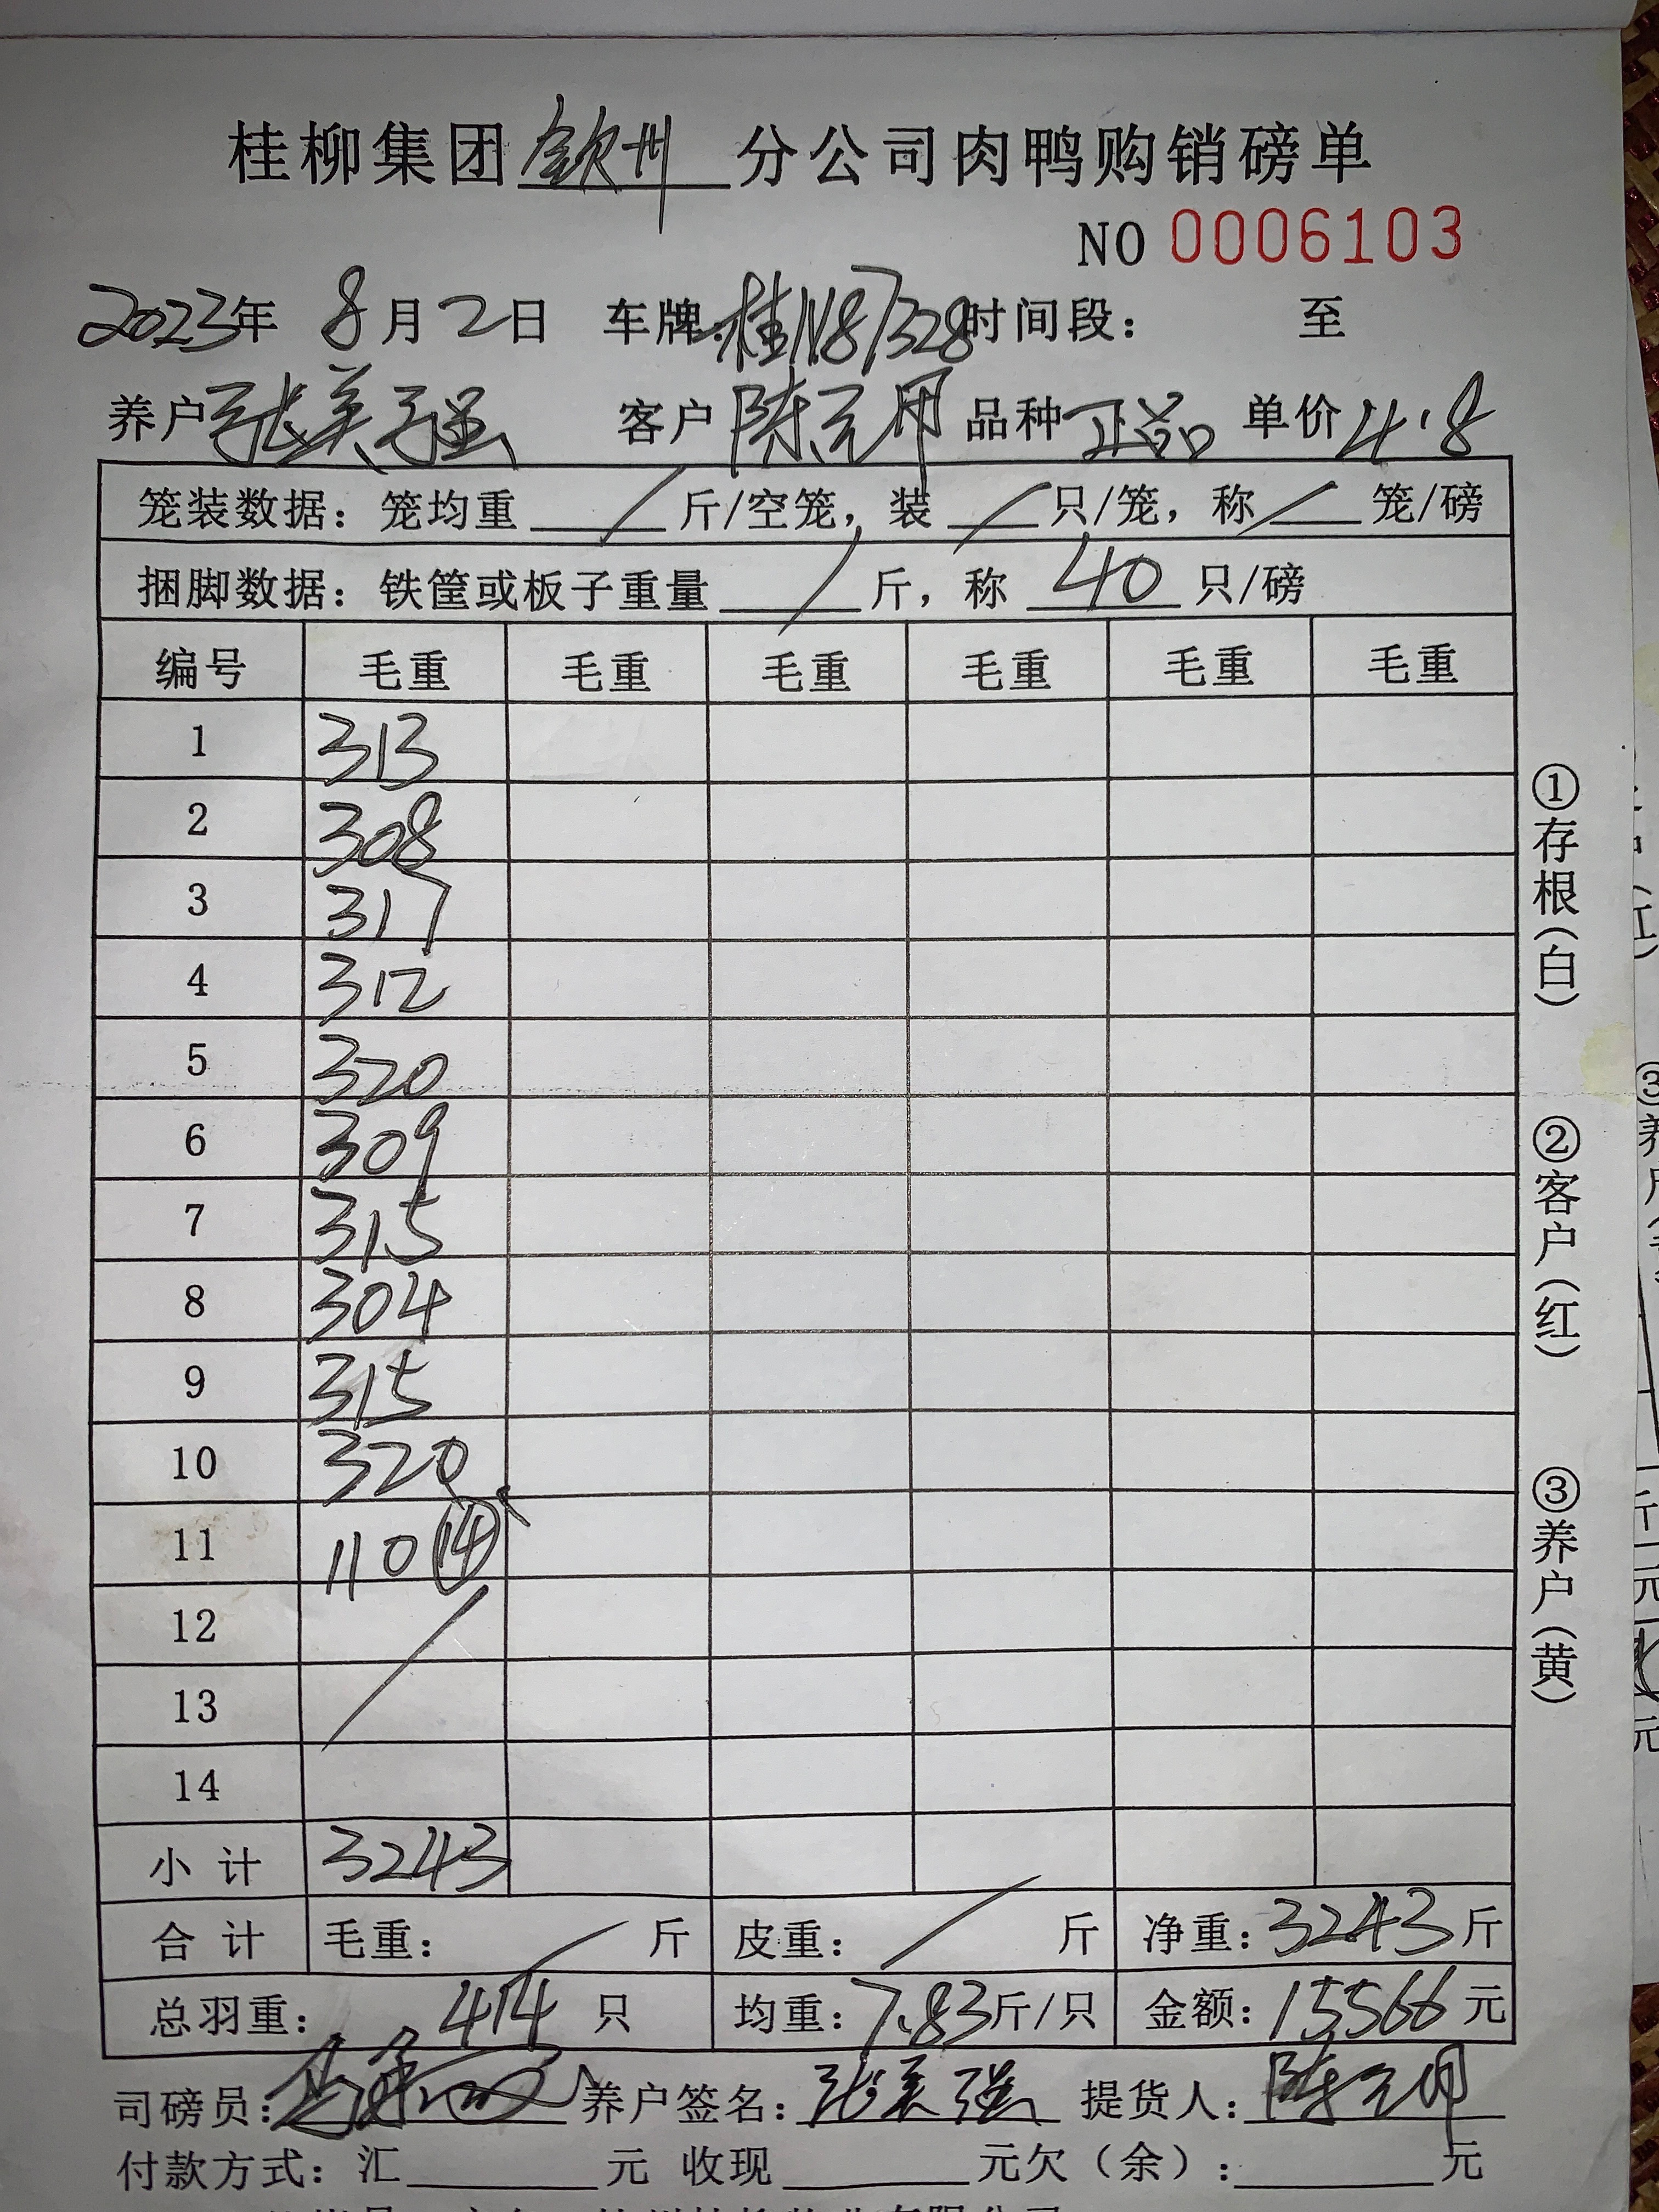 桂柳集团钦州分公司肉鸭购销磅单
NO 0006103
2023年 8月2日 车牌:桂N87328时间段: 至
养户张美强 客户陈元用 品种正品 单价4.8
笼装数据: 笼均重 / 斤/空笼, 装 / 只/笼, 称 / 笼/磅
捆脚数据: 铁筐或板子重量 / 斤, 称 40 只/磅
编号 毛重 毛重 毛重 毛重 毛重 毛重
1 313
2 308
3 317
4 312
5 320
6 309
7 315
8 304
9 315
10 320
11 110 ⑭
12 /
13
14
小 计 3243
合 计 毛重: / 斤 皮重: / 斤 净重:3243斤
总羽重: 414 只 均重:7.83斤/只 金额:15566元
司磅员: 养户签名:张美强 提货人:陈元用
付款方式: 汇 元 收现 元欠(余): 元
①存根(白)
②客户(红)
③养户(黄)